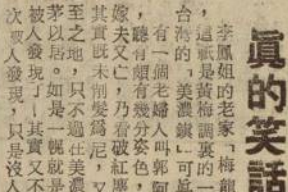 眞的笑話
李鳳姐的老家「梅龍
,這祇是黃梅調裏的一
台灣的「美濃鎭」可是
有一個老婦人叫郭阿
,聽有頗有幾分姿色,
嫁夫又亡,乃看破紅塵
其實既未削髮爲尼,又
至之地,只不過在美濃
茅以居。如是一幌就是
被人發現了—其實又不
次被人發現,只是沒人